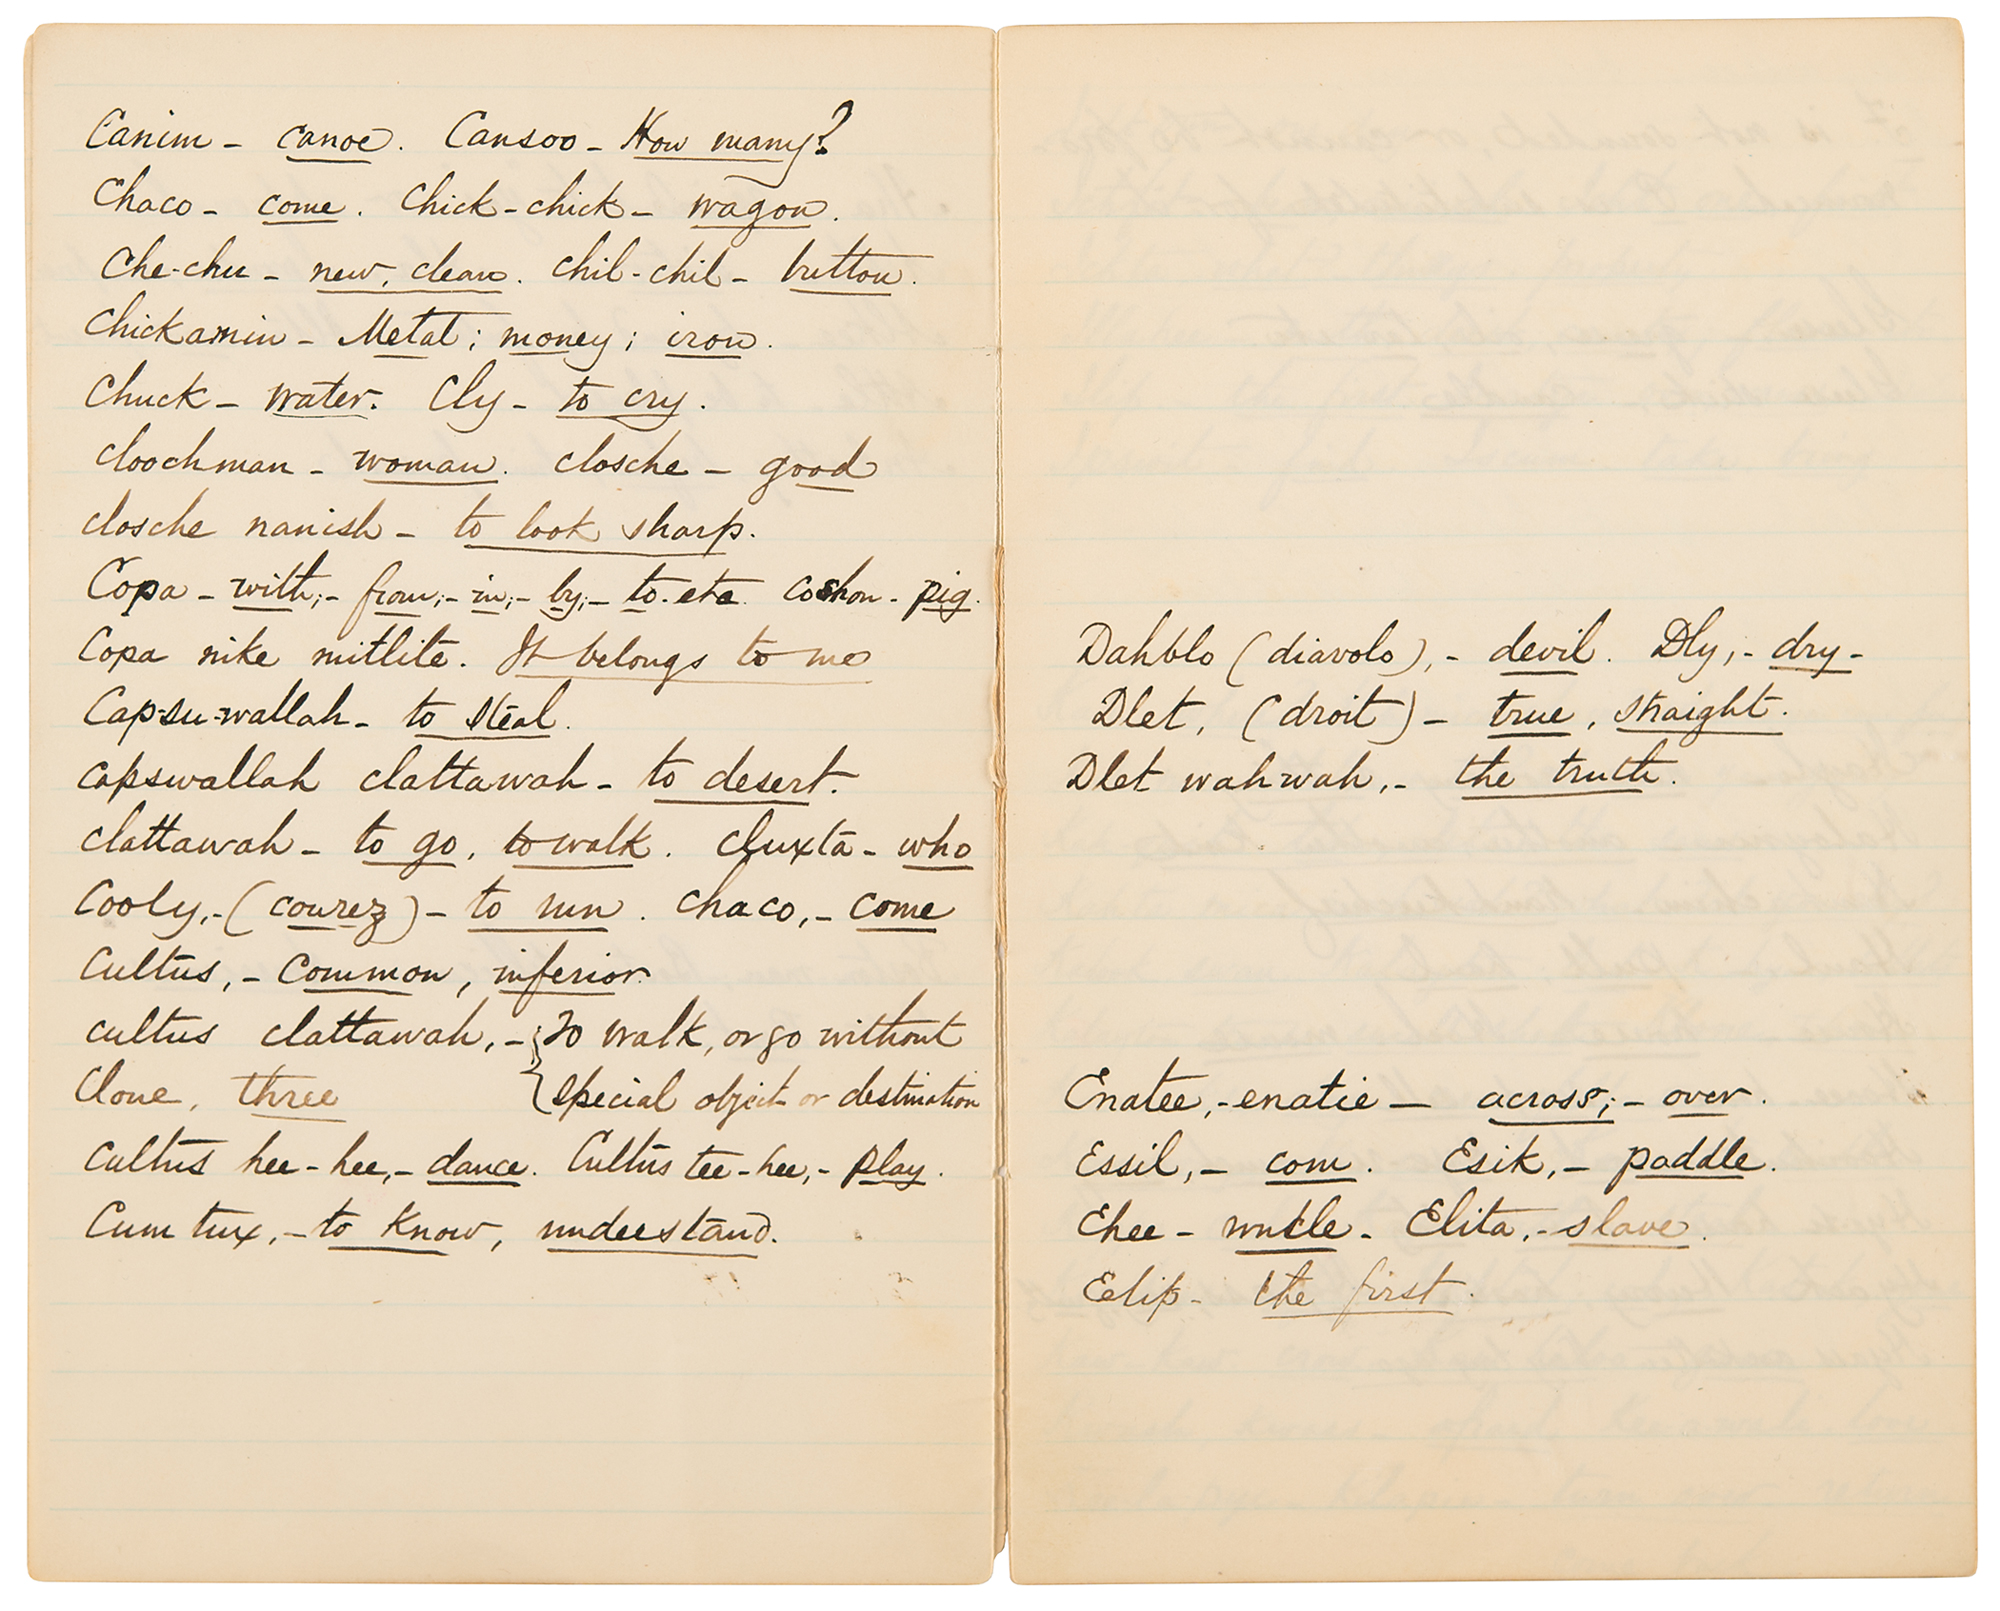 Canim - canoe. Cansoo - How many?
Chaco - come. Chick-chick - wagon.
Che-chu - new, clean. Chil-chil - button.
Chickamin - Metal; money; iron.
Chuck - water. Cly - to cry.
cloochman - woman. closche - good
closche nanish - to look sharp.
Copa - with;- from;- in;- by;- to. etc. coshon - pig.
Copa nike mitlite. It belongs to me
Cap-su-wallah - to steal.
capswallah clattawah - to desert.
clattawah - to go, to walk. cluxta - who
Cooly,-(courez) - to run. Chaco,- come
Cultus,- common, inferior.
cultus clattawah,- {To walk, or go without
Clone, three {special object or destination
Cultus hee-hee,- dance. Cultus tee-hee,- play.
Cum tux,- to know, understand.
Dahblo (diavolo),- devil. Dly,- dry-
Dlet, (droit) - true, straight.
Dlet wah-wah,- the truth.
Enatee,- enatie - across;- over.
Essil,- corn. Esik,- paddle.
Ehee - uncle - Elita,- slave.
Eelip - the first.